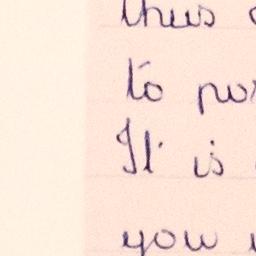 thus
to
It is
you